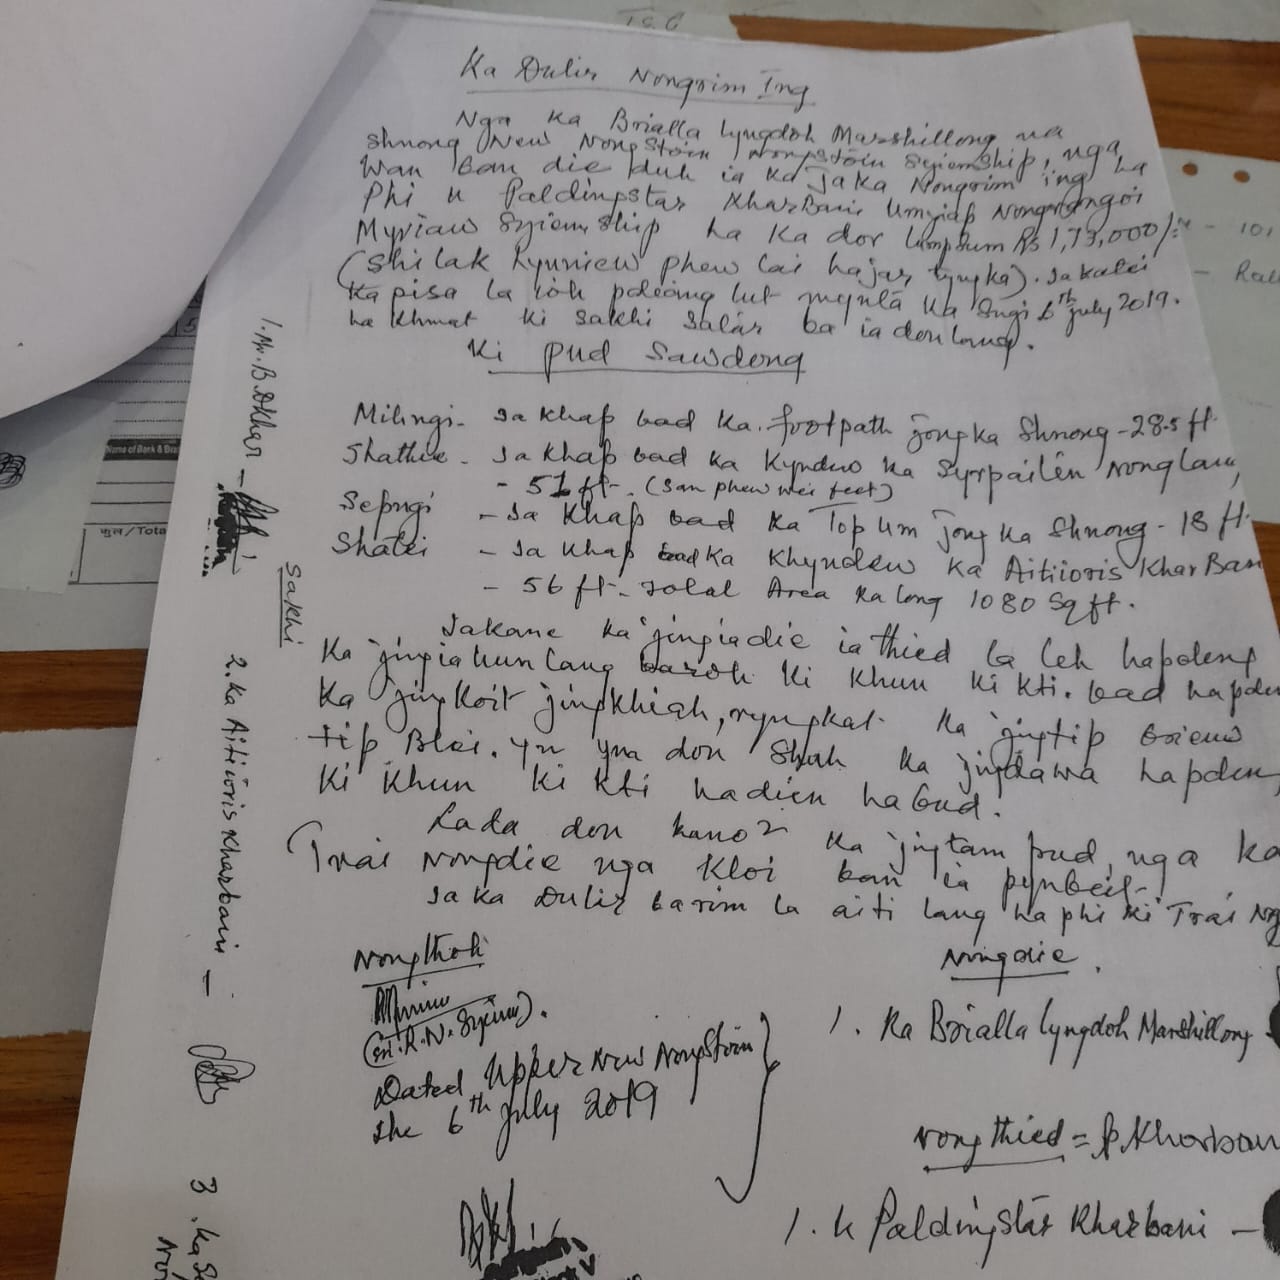 Ka Dulir Nongrim Ing
Nga ka Brialla Lyngdoh Marshillong na
Shnong New Nongstoin, Nongstoin Syiemship, nga
Wan ban die duh ia ka Jaka Nongrim ing ha
Phi u Paldingstar KharBani Umyiap Nongrangoi
Myriaw Syiem Ship ha ka dor Lumpsum Rs 1,73,000/-
(Shilak hynniew phew lai hajar tyngka). Ia katei
ka pisa la ioh pdiang lut mynta ka Sngi 6th July 2019.
ha khmat ki sakhi salar ba ia don lang.
Ki Pud Sawdong
Milingi - Ia khap bad ka footpath jong ka Shnong - 28.5 ft
Shathie - Ia khap bad ka Kyndew ka Syrpailin Nonglam,
- 51 ft. (San phew wei feet)
Sepngi - Ia khap bad ka Top Um jong ka Shnong - 18 ft
Shatei - Ia khap bad ka Khyndew ka Aitiioris KharBan
- 56 ft. Total Area ka long 1080 Sq ft.
Iakane ka jingiadie ia thied la leh hapdeng
ka jingiahun lang baroh ki khun ki kti. bad hapden
ka jingkoit jingkhiah, ryngkat ka jingtip briew
tip Blei. Yn ym don Shah ka jingdawa hapden
ki khun ki kti hadien habud.
Lada don kano2 ka jingtam pud, nga ka
(Trai Nongdie nga kloi ban ia pynbeit.
Ia ka Dulir barim la aiti lang ha phi ki Trai Ng
Nongthoh
(Sri. R. N. Syiem).
Dated Upper New Nongstoin
the 6th July 2019
Nongdie.
1. Ka Brialla Lyngdoh Marshillong
Nongthied = P. Kharbani
1. U Paldingstar Kharbani -
Sakhi
1. Mr. B. Dkhar -
2. Ka Aitiioris Kharbani -
3. Ka
Name of Bank &
कुल / Total